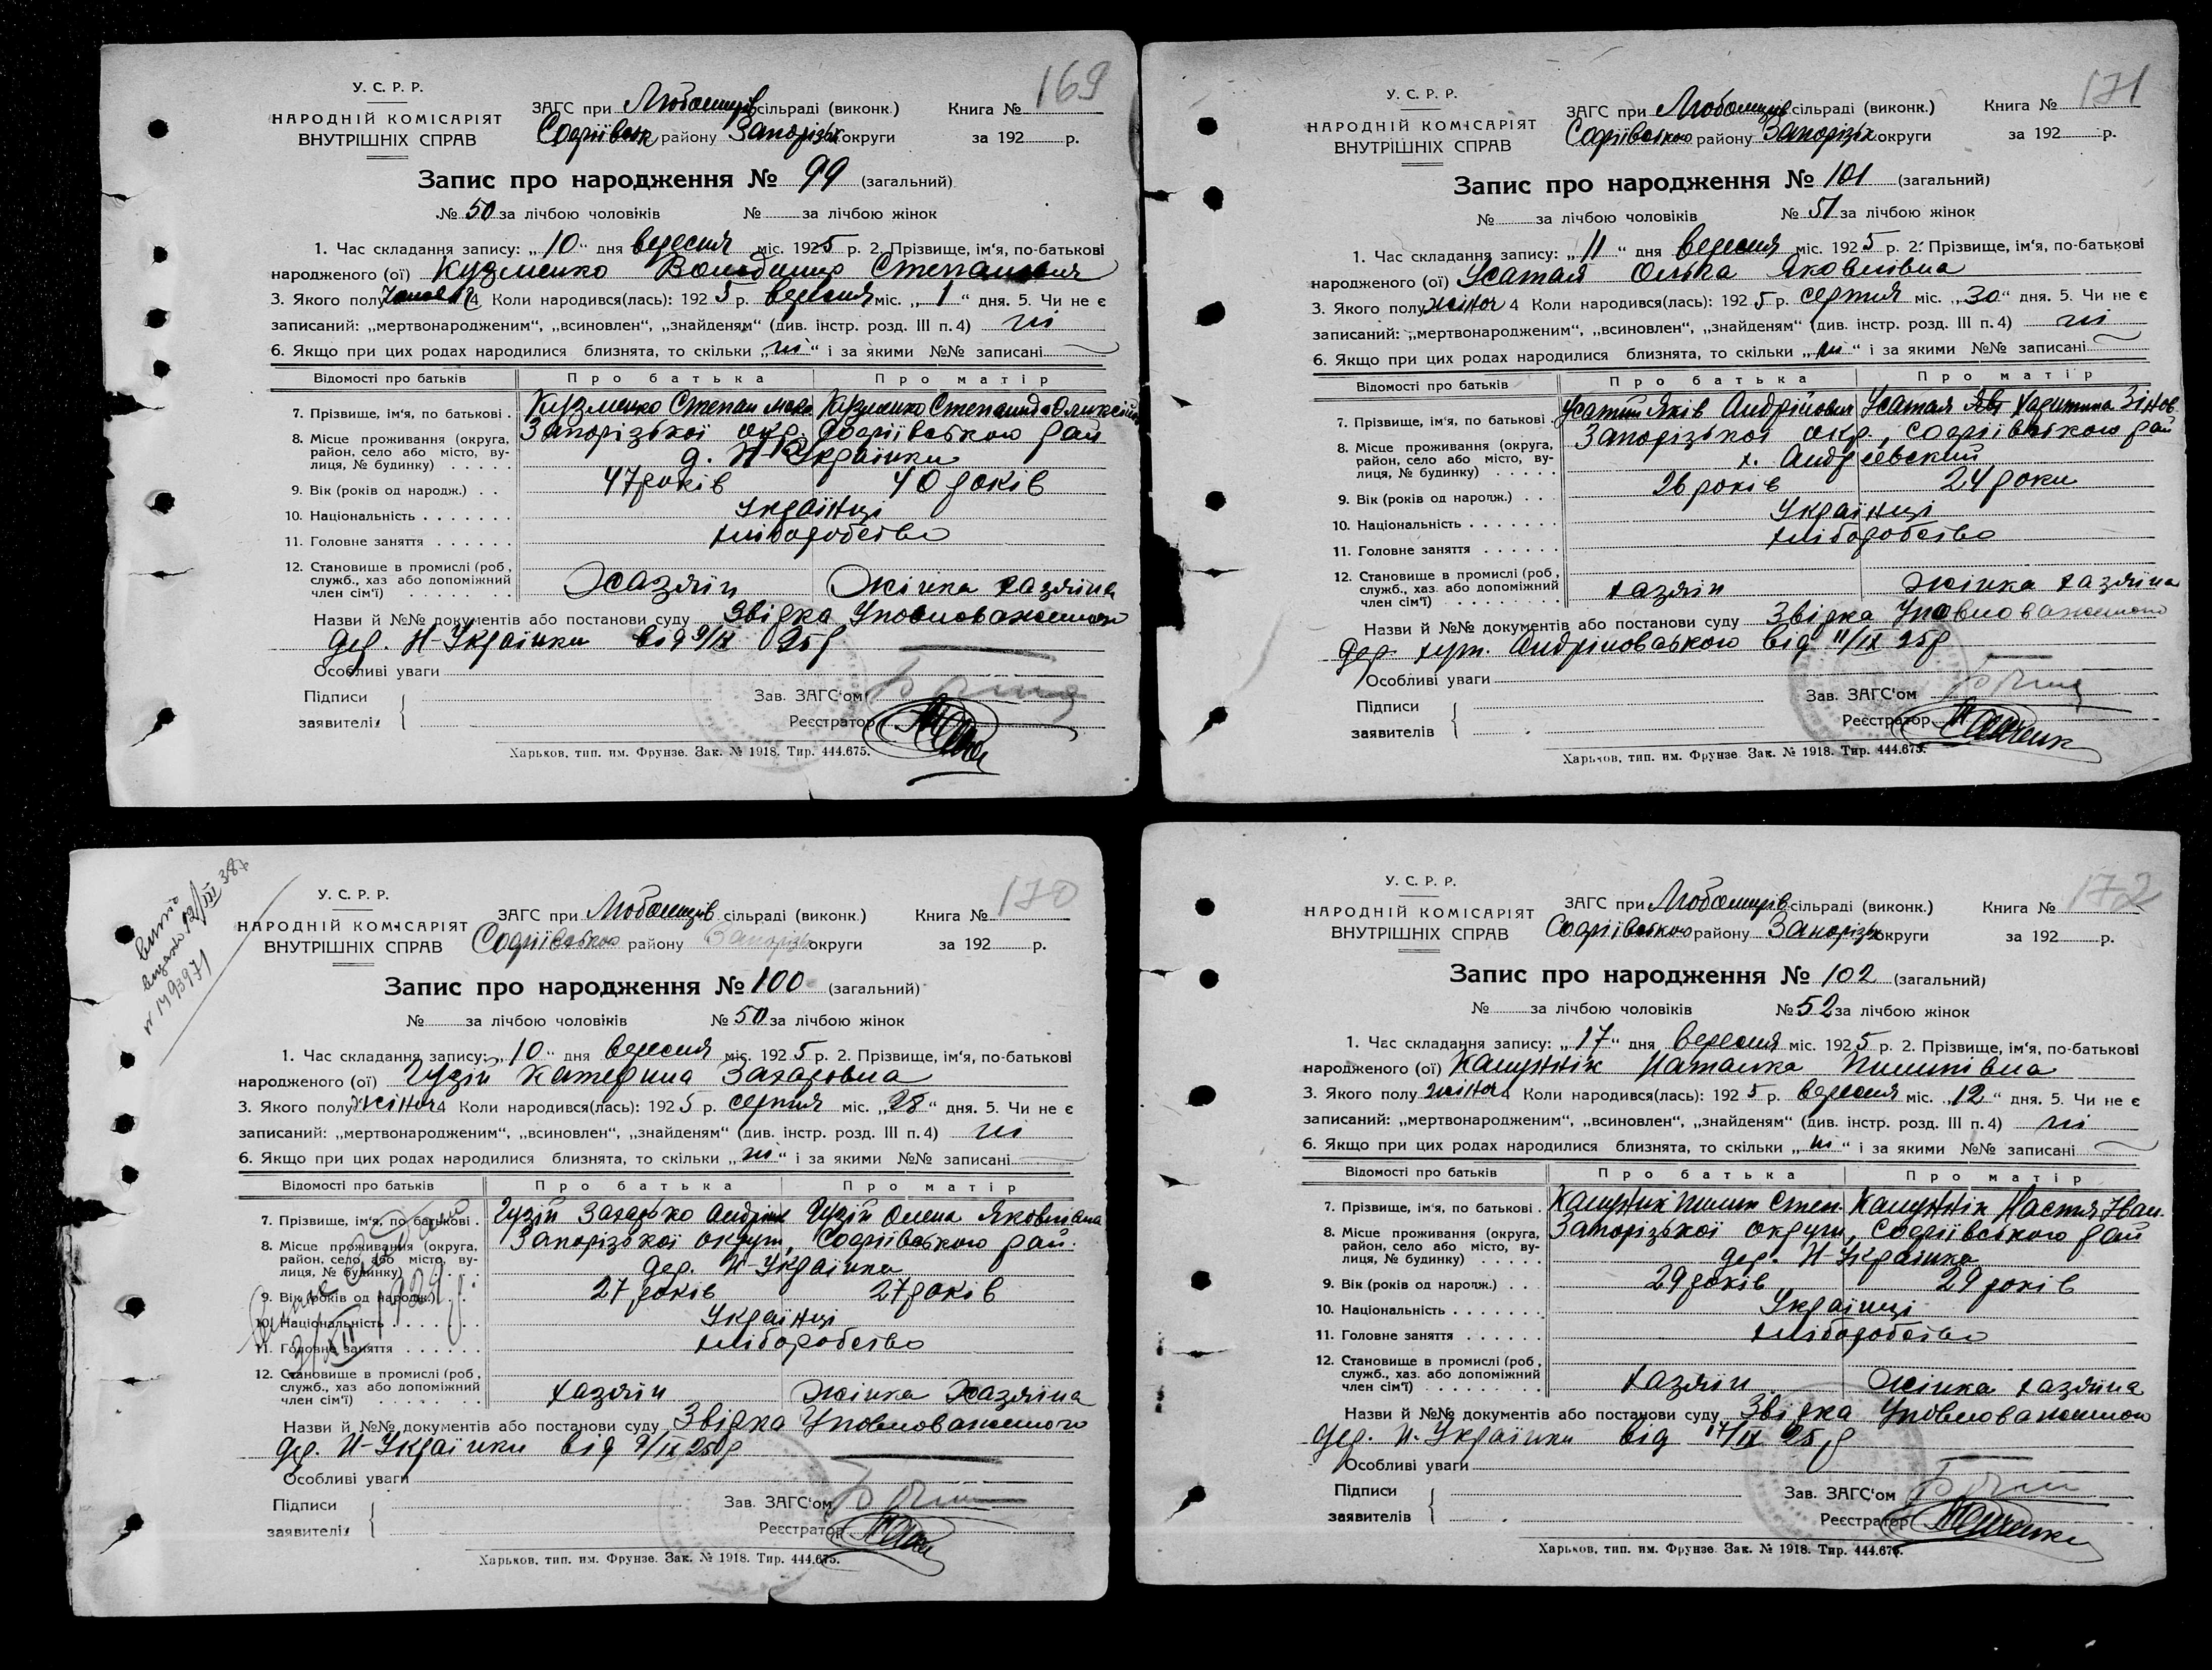 169
У. С. Р. Р.
НАРОДНІЙ КОМІСАРІЯТ
ВНУТРІШНІХ СПРАВ
ЗАГС при Любомирів сільраді (виконк.) Книга №
Софіївськ району Запорізьк округи за 192 р.
Запис про народження № 99 (загальний)
№ 50 за лічбою чоловіків № за лічбою жінок
1. Час складання запису: „10“ дня вересня міс. 1925 р. 2. Прізвище, ім'я, по-батькові
народженого (ої) Кузменко Володимир Степанович
3. Якого полу чолов 4 Коли народився(лась): 1925 р. вересня міс. „1“ дня. 5. Чи не є
записаний: „мертвонародженим“, „всиновлен“, „знайденям“ (див. інстр. розд. III п. 4) ні
6. Якщо при цих родах народилися близнята, то скільки „ні“ і за якими №№ записані
Відомості про батьків Про батька Про матір
7. Прізвище, ім'я, по батькові . Кузменко Степан Кузменко Степанида
8. Місце проживання (округа, район, село або місто, вулиця, № будинку) Запорізької окр. Софіївського рай
д. Н-Українки
9. Вік (років од народж.) . . 47 років 40 років
10. Національність Українці
11. Головне заняття хліборобство
12. Становище в промислі (роб, служб., хаз або допоміжний член сім'ї) Хазяїн Жінка хазяїна
Назви й №№ документів або постанови суду Звідка Уповноваженого
дер. Н-Українки від 9/IX 25 р
Особливі уваги
Підписи Зав. ЗАГС'ом
заявителів Реєстратор
Харьков, тип. им. Фрунзе. Зак. № 1918. Тир. 444.675.
171
У. С. Р. Р.
НАРОДНІЙ КОМІСАРІЯТ
ВНУТРІШНІХ СПРАВ
ЗАГС при Любомирів сільраді (виконк.) Книга №
Софіївського району Запорізьк округи за 192 р.
Запис про народження № 101 (загальний)
№ за лічбою чоловіків № 51 за лічбою жінок
1. Час складання запису: „11“ дня вересня міс. 1925 р. 2. Прізвище, ім'я, по-батькові
народженого (ої) Усатая Олька Яковлівна
3. Якого полу жіноч 4 Коли народився(лась): 1925 р. серпня міс. „30“ дня. 5. Чи не є
записаний: „мертвонародженим“, „всиновлен“, „знайденям“ (див. інстр. розд. III п. 4) ні
6. Якщо при цих родах народилися близнята, то скільки „ні“ і за якими №№ записані
Відомості про батьків Про батька Про матір
7. Прізвище, ім'я, по батькові . Усатий Яків Андрійович Усатая Харитина Зінов.
8. Місце проживання (округа, район, село або місто, вулиця, № будинку) Запорізької окр., Софіївського рай
х. Андреевский
9. Вік (років од народж.) . . . 26 років 24 роки
10. Національність Українці
11. Головне заняття хліборобство
12. Становище в промислі (роб, служб., хаз. або допоміжний член сім'ї) хазяїн Жінка хазяїна
Назви й №№ документів або постанови суду Звідка Уповноваженого
дер. хут. Андріповського від 11/IX 25 р
Особливі уваги
Підписи Зав. ЗАГС'ом
заявителів Реєстратор
Харьков, тип. им. Фрунзе. Зак. № 1918. Тир. 444.675.
12/III 38
№ 1493971
170
У. С. Р. Р.
НАРОДНІЙ КОМІСАРІЯТ
ВНУТРІШНІХ СПРАВ
ЗАГС при Любомирів сільраді (виконк.) Книга №
Софіївського району Запорізь округи за 192 р.
Запис про народження № 100 (загальний)
№ за лічбою чоловіків № 50 за лічбою жінок
1. Час складання запису: „10“ дня вересня міс. 1925 р. 2. Прізвище, ім'я, по-батькові
народженого (ої) Гузій Катерина Захаровна
3. Якого полу жіноч 4 Коли народився(лась): 1925 р. серпня міс. „28“ дня. 5. Чи не є
записаний: „мертвонародженим“, „всиновлен“, „знайденям“ (див. інстр. розд. III п. 4) ні
6. Якщо при цих родах народилися близнята, то скільки „ні“ і за якими №№ записані
Відомості про батьків Про батька Про матір
7. Прізвище, ім'я, по батькові . Гузій Захарько Андрійов Гузій Олена Яковлівна
8. Місце проживання (округа, район, село або місто, вулиця, № будинку) Запорізької округи, Софіївського рай.
дер. Н-Українка
9. Вік (років од народж.) 27 років 27 років
10. Національність Українці
11. Головне заняття хліборобство
12. Становище в промислі (роб, служб., хаз або допоміжний член сім'ї) хазяїн Жінка Хазяїна
Назви й №№ документів або постанови суду Звідка Уповноваженого
дер. Н-Українки від 9/IX 25 р
Особливі уваги
Підписи Зав. ЗАГС'ом
заявителів Реєстратор
Харьков, тип. им. Фрунзе. Зак. № 1918. Тир. 444.675.
172
У. С. Р. Р.
НАРОДНІЙ КОМІСАРІЯТ
ВНУТРІШНІХ СПРАВ
ЗАГС при Любомирів сільраді (виконк.) Книга №
Софіївського району Запорізьк округи за 192 р.
Запис про народження № 102 (загальний)
№ за лічбою чоловіків № 52 за лічбою жінок
1. Час складання запису: „17“ дня вересня міс. 1925 р. 2. Прізвище, ім'я, по-батькові
народженого (ої) Калужнік Наталка Пилипівна
3. Якого полу жіноч 4 Коли народився(лась): 1925 р. вересня міс. „12“ дня. 5. Чи не є
записаний: „мертвонародженим“, „всиновлен“, „знайденям“ (див. інстр. розд. III п. 4) ні
6. Якщо при цих родах народилися близнята, то скільки „ні“ і за якими №№ записані
Відомості про батьків Про батька Про матір
7. Прізвище, ім'я, по батькові . Калужник Пилип Степ. Калужнік Настя Іван.
8. Місце проживання (округа, район, село або місто, вулиця, № будинку) Запорізької округи, Софіївського рай
дер. Н-Українка
9. Вік (років од народж.) . . . 29 років 29 років
10. Національність Українці
11. Головне заняття хліборобство
12. Становище в промислі (роб, служб., хаз. або допоміжний член сім'ї) хазяїн Жінка хазяїна
Назви й №№ документів або постанови суду Звідка Уповноваженого
дер. Н. Українки від 17/IX 25 р
Особливі уваги
Підписи Зав. ЗАГС'ом
заявителів Реєстратор
Харьков, тип. им. Фрунзе. Зак. № 1918. Тир. 444.675.